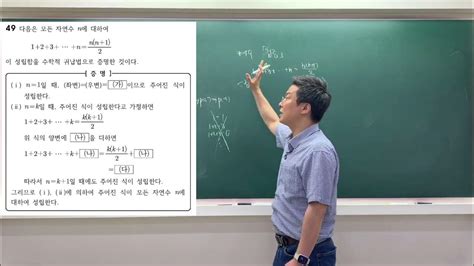 49 다음은 모든 자연수 n에 대하여
1+2+3+ ⋯ +n=n(n+1)/2
이 성립함을 수학적 귀납법으로 증명한 것이다.
[ 증 명 ]
(i) n=1일 때, (좌변)=(우변)= (가) 이므로 주어진 식이
성립한다.
(ii) n=k일 때, 주어진 식이 성립한다고 가정하면
1+2+3+ ⋯ +k=k(k+1)/2
위 식의 양변에 (나) 을 더하면
1+2+3+ ⋯ +k+ (나) =k(k+1)/2+ (나)
= (다)
따라서 n=k+1일 때에도 주어진 식이 성립한다.
그러므로 (i), (ii)에 의하여 주어진 식이 모든 자연수 n에
대하여 성립한다.